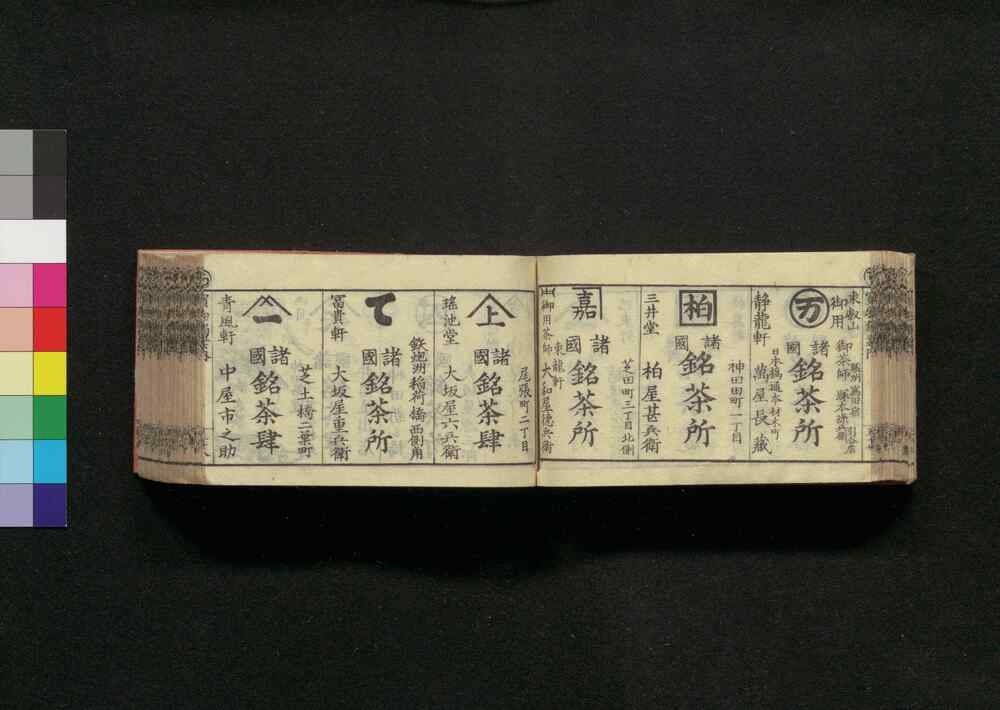 東叡山
御用
御茶師
万
諸國
銘茶所
日本橋通本材木町
静龍軒
萬屋長藏
柏
諸國
銘茶所
神田田町一丁目
三井堂
柏屋甚兵衛
嘉
諸國
銘茶所
芝田町三丁目北側
御用茶師
東龍軒
大和屋德兵衛
上
諸國
銘茶肆
尾張町二丁目
瑤池堂
大坂屋六兵衛
て
諸國
銘茶所
鉄炮洲稲荷橋西側角
冨貴軒
大坂屋重兵衛
一
諸國
銘茶肆
芝土橋二葉町
青風軒
中屋市之助